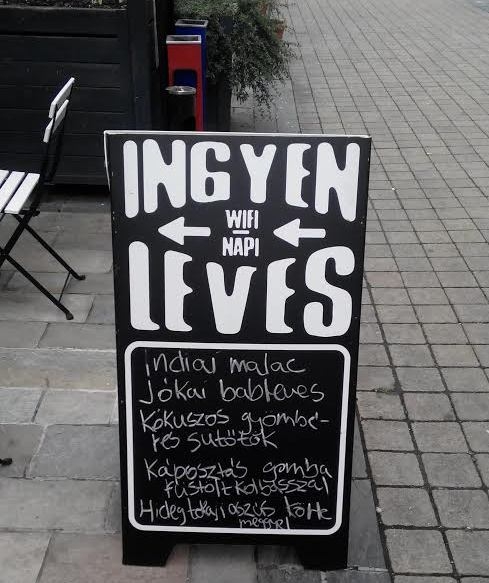 INGYEN
WIFI
NAPI
LEVES
Indiai malac
Jókai bableves
Kókuszos gyömbé-
res sütőtök
Káposztás gomba
füstölt kolbásszal
Hideg tokaji aszús körte
meggyel